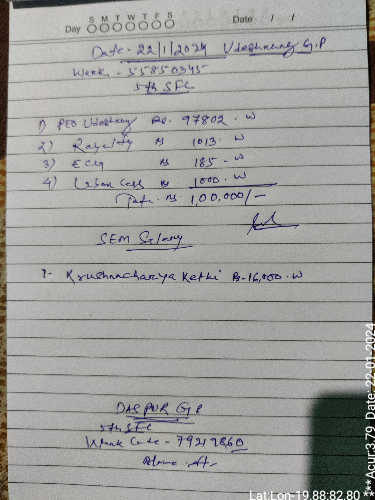 S M T W T F S
Day
Date / /
Date - 22/1/2024 G.P
Week - 55850345
5th SFC
1) PEO Rs. 97802.w
2) Royality Rs 1013.w
3) Rs 185-w
4) Labour Cess Rs 1000.w
Rs. 1,00,000/-
SEM Salary
1- Krushnachariya Ketki Rs-16,000.w
DASPUR G.P
5th SFC
Work Code - 79219860
Lat:Lon-19.88:82.80
***Acur:3.79 Date: 22-01-2024